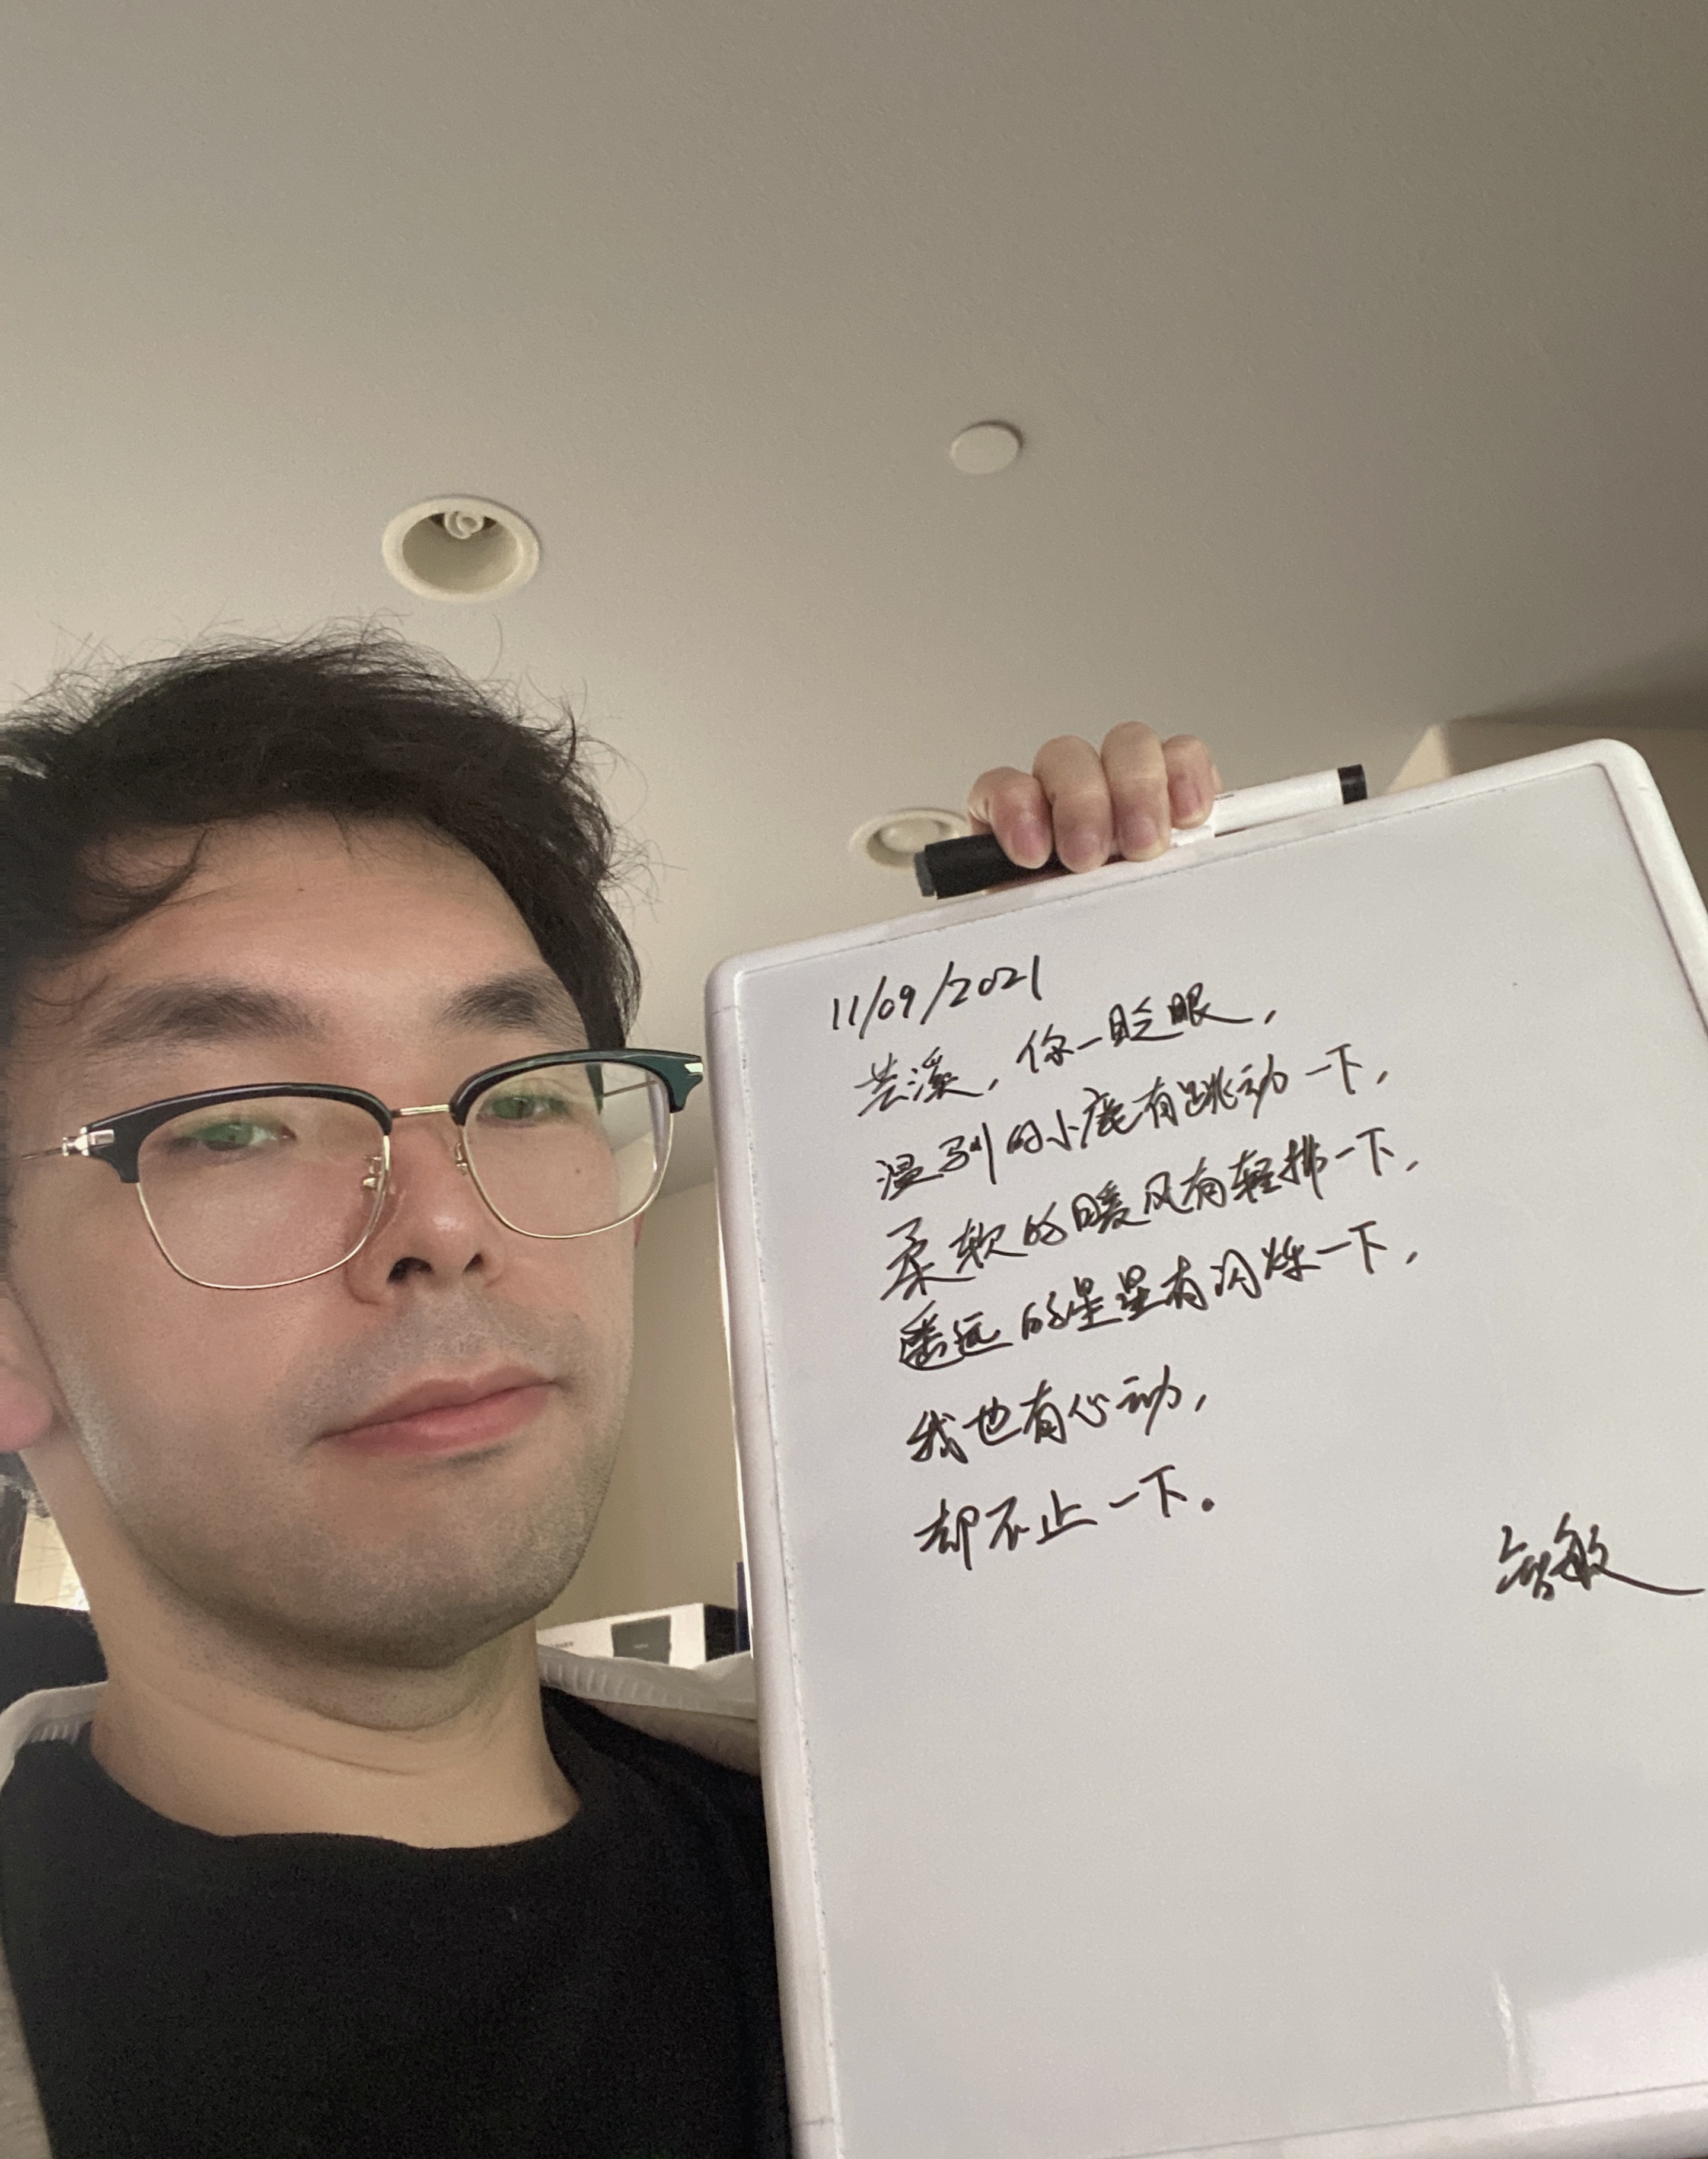 11/09/2021
芸溪,你一眨眼,
温驯的小鹿有跳动一下,
柔软的暖风有轻拂一下,
遥远的星星有闪烁一下,
我也有心动,
却不止一下。
智敏